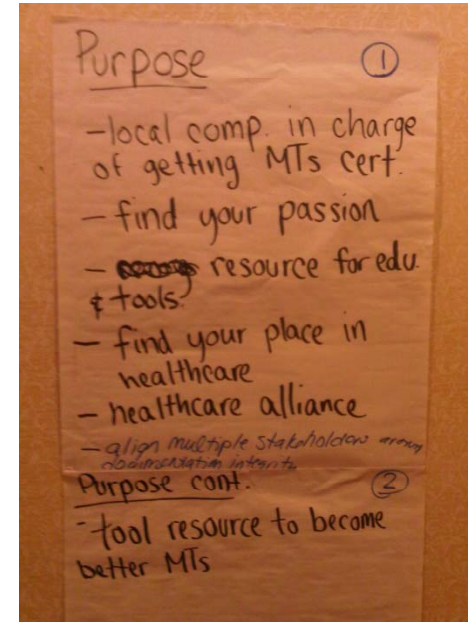 Purpose ①
- local comp. in charge
of getting MTs cert.
- find your passion
- resource for edu.
& tools.
- find your place in
healthcare
- healthcare alliance
- align multiple stakeholders around
documentation integrity
Purpose cont. ②
- tool resource to become
better MTs